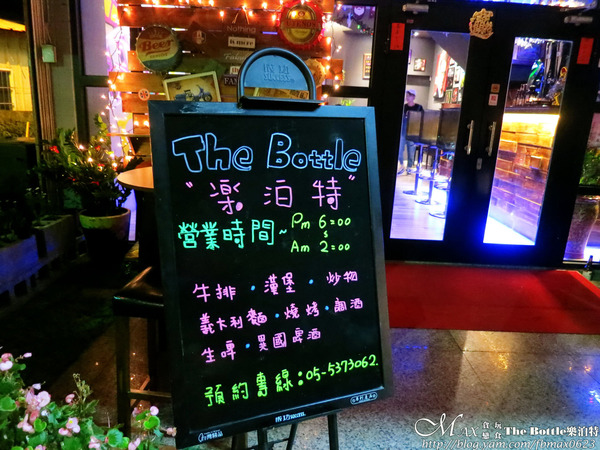 Beer
Nothing
The Bottle
"樂泊特"
營業時間~ Pm 6:00
s
Am 2:00
牛排·漢堡·炒物
義大利麵·燒烤·調酒
生啤·異國啤酒
預約專線:05-5373062.
MAX 食玩戀食 The Bottle樂泊特
http://blog.yam.com/fbmax0623